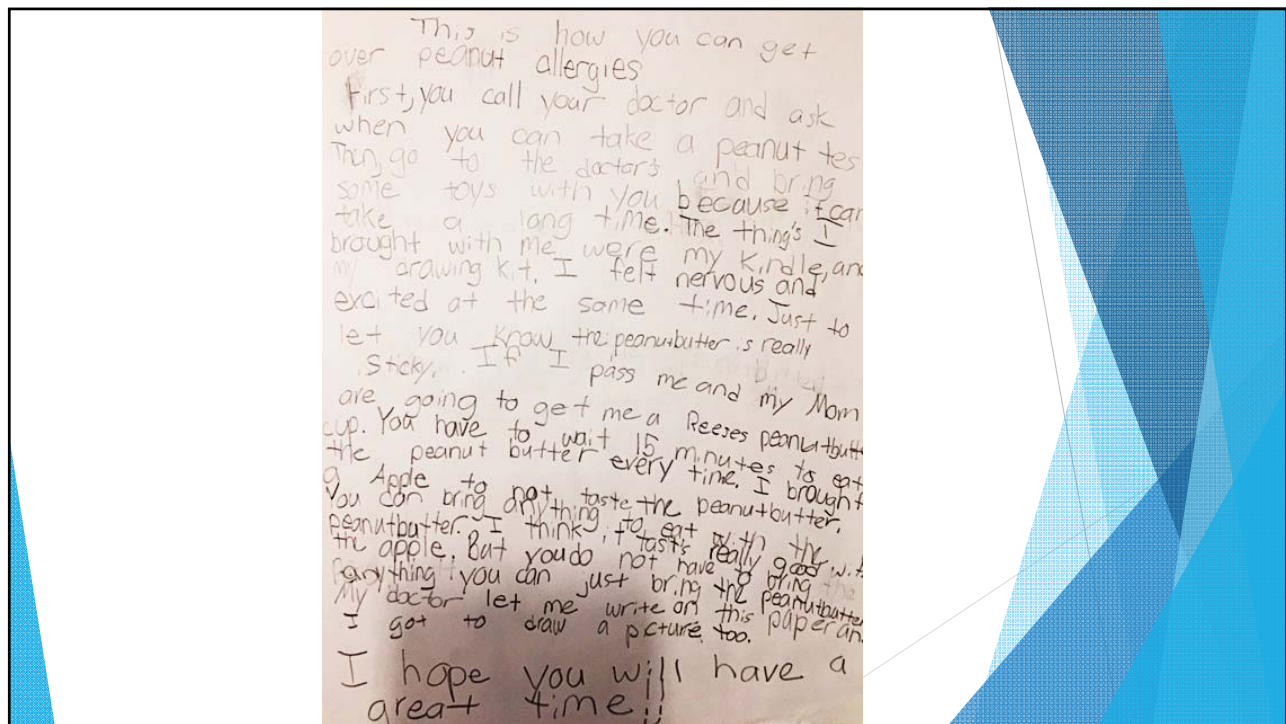 This is how you can get
over peanut allergies
First, you call your doctor and ask
when you can take a peanut tes
Then, go to the doctors and bring
some toys with you because it can
take a long time. The thing's I
brought with me were my Kindle, and
my drawing kit. I felt nervous and
excited at the same time. Just to
let you know the peanutbutter is really
Sticky. If I pass me and my Mom
are going to get me a Reeses peanutbutte
cup. You have to wait 15 minutes to eat
the peanut butter every time. I brought
a Apple to not taste the peanutbutter.
You can bring anything to eat with the
peanutbutter. I think it tast's really good wit
the apple. But you do not have to bring the
anything you can just bring the peanutbutter
My doctor let me write on this paper an
I got to draw a picture too.
I hope you will have a
great time!!